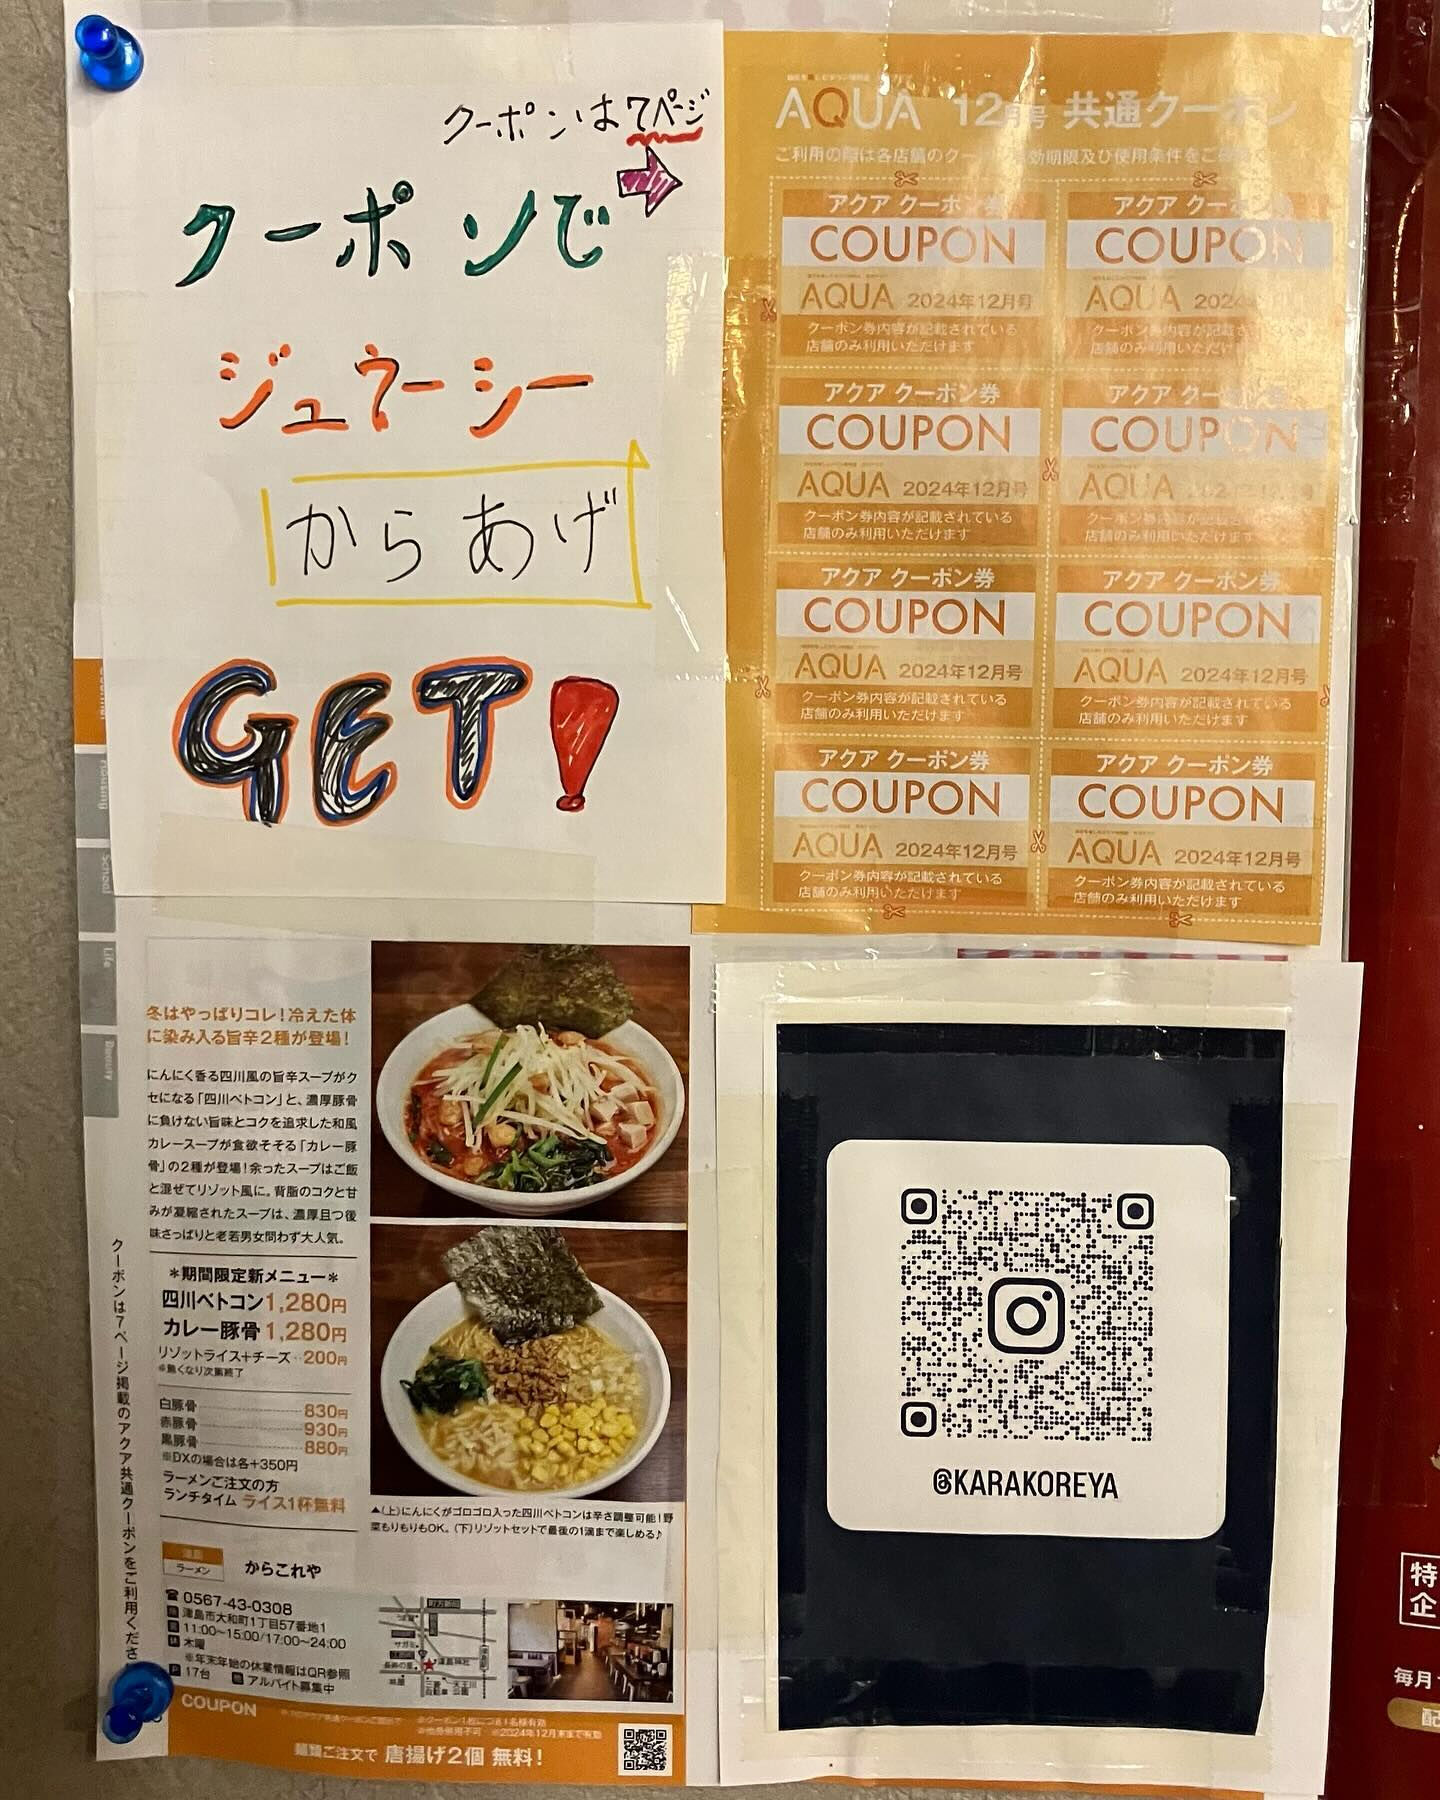 クーポンは7ページ
クーポンで
ジューシー
からあげ
GET!
AQUA 12月号 共通クーポン
アクア クーポン券
COUPON
AQUA 2024年12月号
クーポン券内容が記載されている
店舗のみ利用いただけます
アクア クーポン券
COUPON
AQUA
クーポン券内容が記載されて
店舗のみ利用いただけます
アクア クーポン券
COUPON
AQUA 2024年12月号
クーポン券内容が記載されている
店舗のみ利用いただけます
アクア クーポン券
COUPON
AQUA
クーポン券内容が記載されている
店舗のみ利用いただけます
アクア クーポン券
COUPON
AQUA 2024年12月号
クーポン券内容が記載されている
店舗のみ利用いただけます
アクア クーポン券
COUPON
AQUA 2024年12月号
クーポン券内容が記載されている
店舗のみ利用いただけます
アクア クーポン券
COUPON
AQUA 2024年12月号
クーポン券内容が記載されている
店舗のみ利用いただけます
アクア クーポン券
COUPON
AQUA 2024年12月号
クーポン券内容が記載されている
店舗のみ利用いただけます
Housing
School
Life
Beauty
冬はやっぱりコレ!冷えた体
に染み入る旨辛2種が登場!
にんにく香る四川風の旨辛スープがク
セになる「四川ベトコン」と、濃厚豚骨
に負けない旨味とコクを追求した和風
カレースープが食欲そそる「カレー豚
骨」の2種が登場!余ったスープはご飯
と混ぜてリゾット風に。背脂のコクと甘
みが凝縮されたスープは、濃厚且つ後
味さっぱりと老若男女問わず大人気。
*期間限定新メニュー*
四川ベトコン1,280円
カレー豚骨 1,280円
リゾットライス+チーズ‥200円
※無くなり次第終了
白豚骨 830円
赤豚骨 930円
黒豚骨 880円
※DXの場合は各+350円
ラーメンご注文の方
ランチタイム ライス1杯無料
▲(上)にんにくがゴロゴロ入った四川ベトコンは辛さ調整可能!野
菜もりもりもOK。(下)リゾットセットで最後の1滴まで楽しめる♪
クーポンは7ページ掲載のアクア共通クーポンをご利用くださ
津島
ラーメン
からこれや
☎0567-43-0308
津島市大和町1丁目57番地1
11:00~15:00/17:00~24:00
木曜
※年末年始の休業情報はQR参照
P 17台 アルバイト募集中
COUPON
※クーポン1枚につき1名様有効
※他券併用不可 ※2024年12月末まで有効
麺類ご注文で 唐揚げ2個 無料!
@KARAKOREYA
特
企
毎月
配